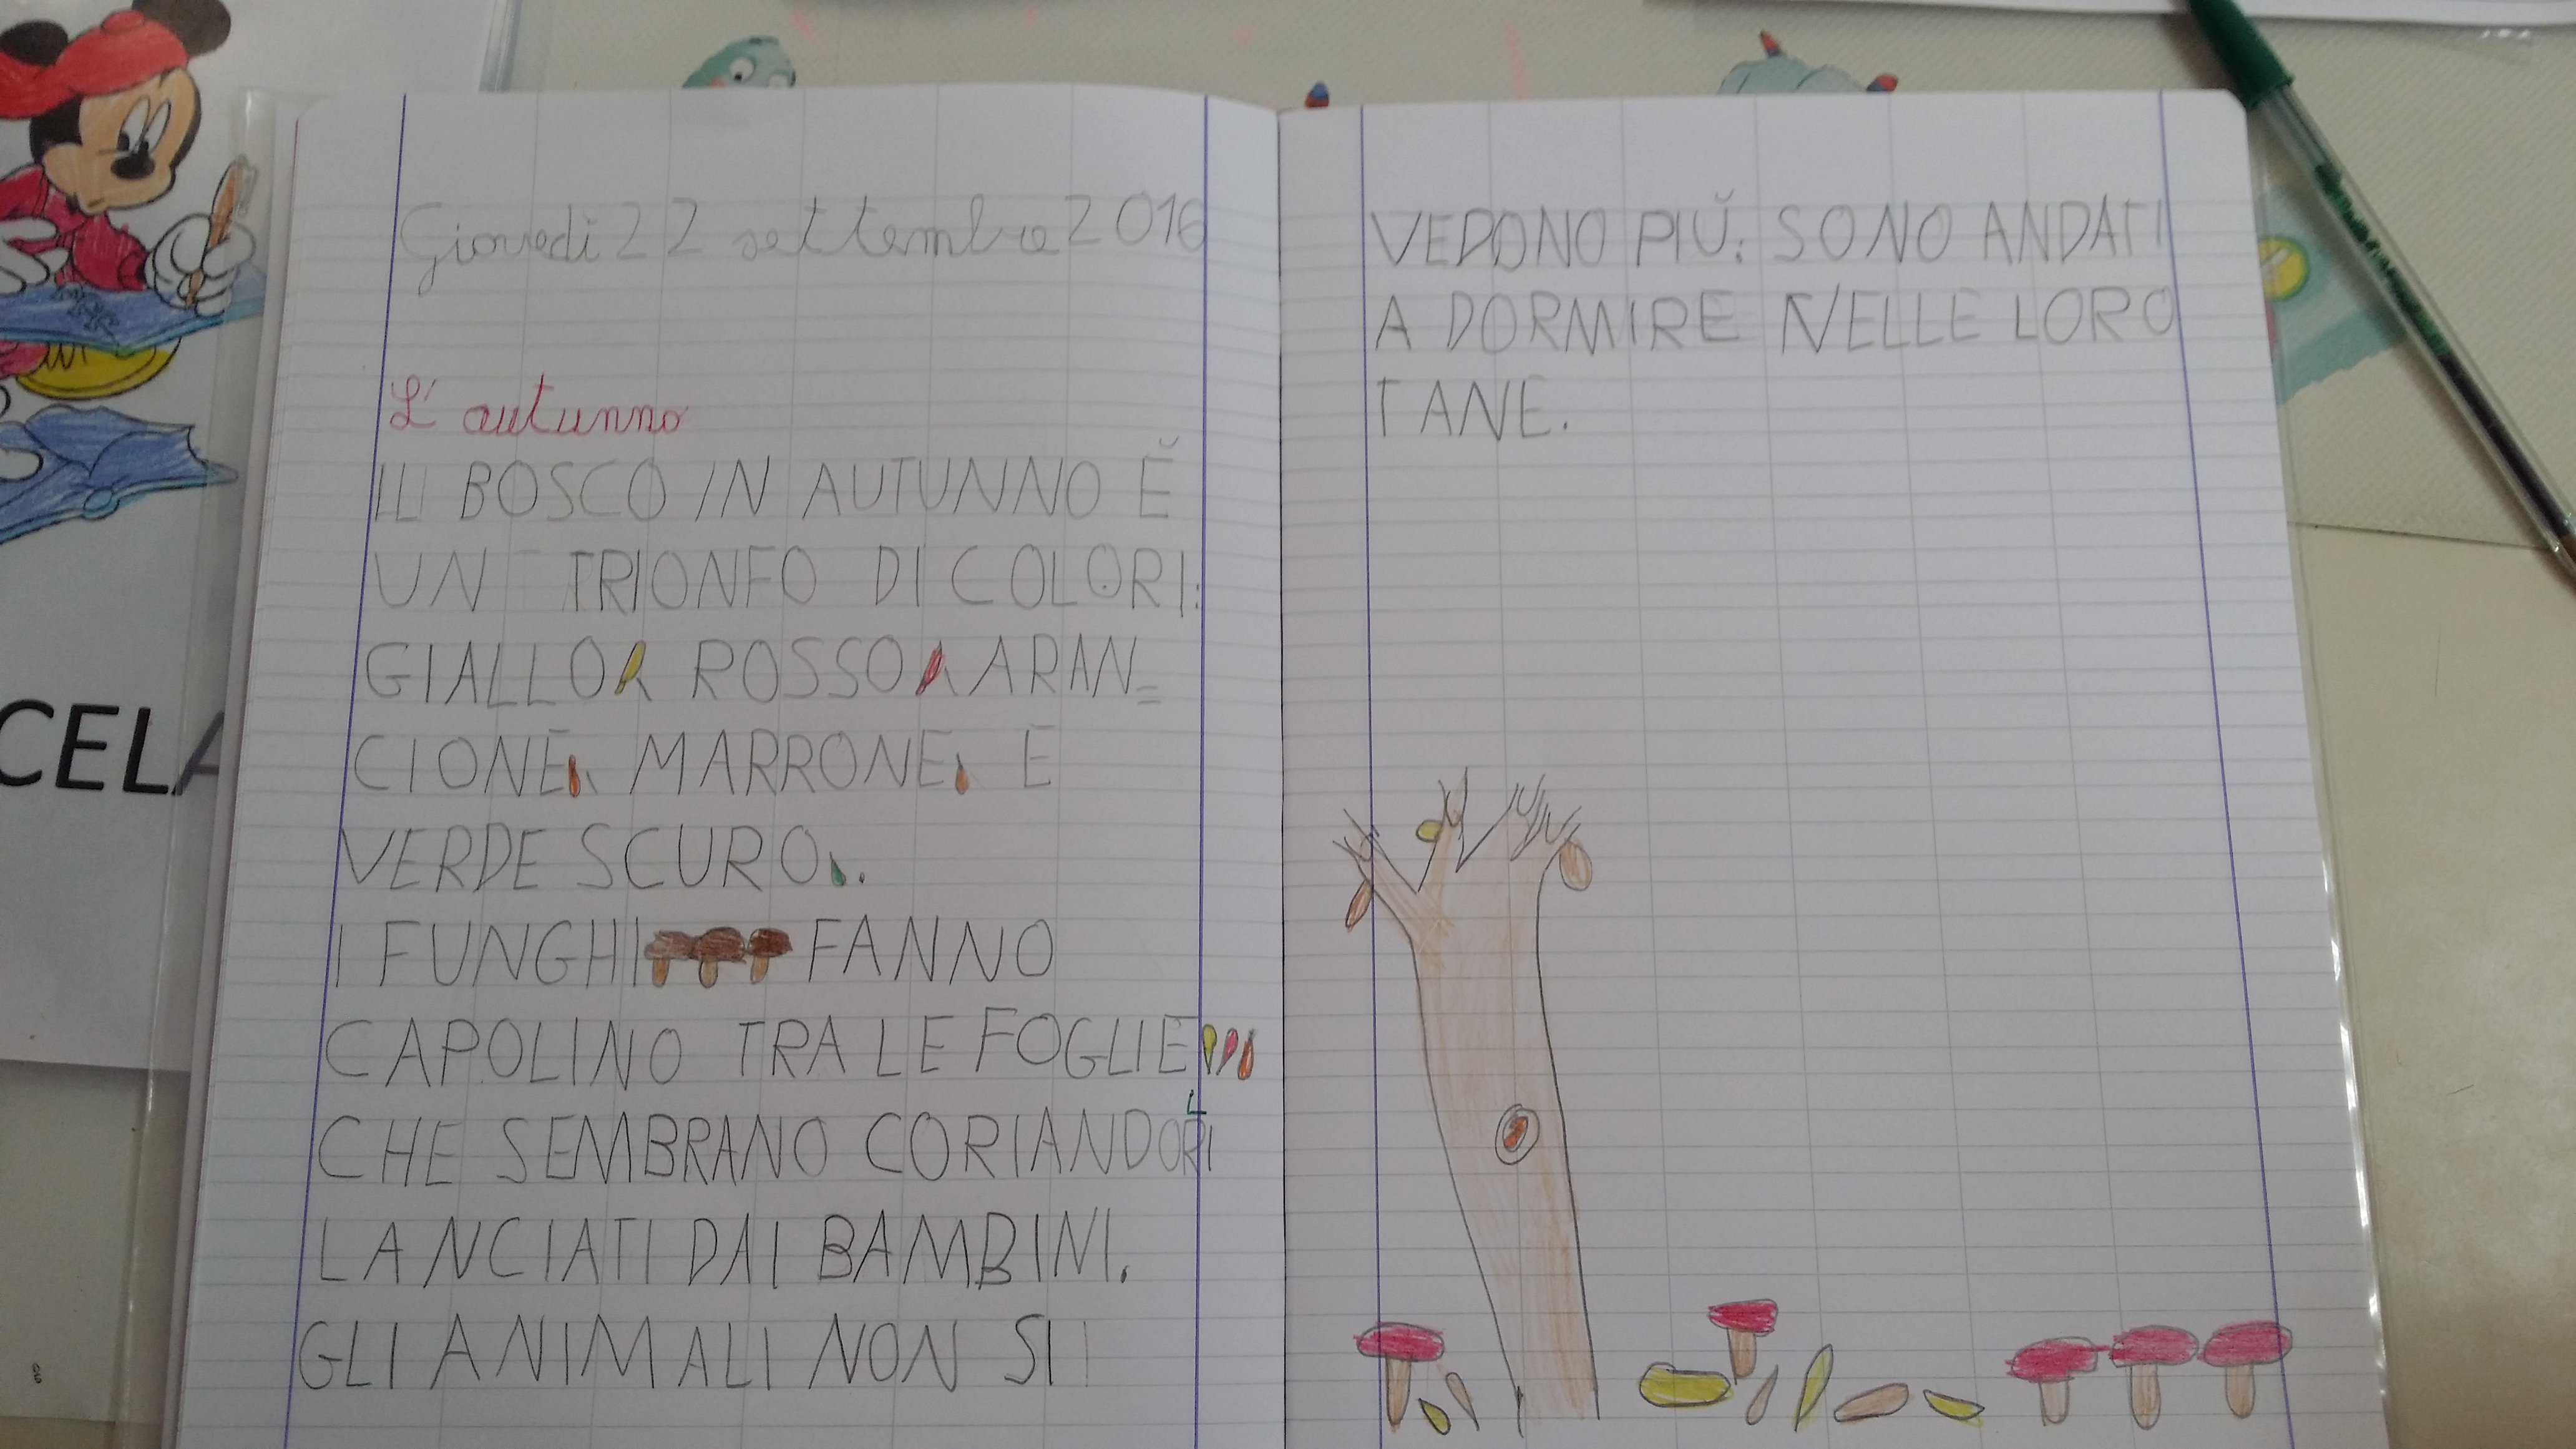 Giovedì 22 settembre 2016
L'autunno
IL BOSCO IN AUTUNNO È
UN TRIONFO DI COLORI:
GIALLO, ROSSO, ARAN=
CIONE, MARRONE, E
VERDE SCURO.
I FUNGHI FANNO
CAPOLINO TRA LE FOGLIE
CHE SEMBRANO CORIANDOLI
LANCIATI DAI BAMBINI.
GLI ANIMALI NON SI
VEDONO PIÙ: SONO ANDATI
A DORMIRE NELLE LORO
TANE.
CELA